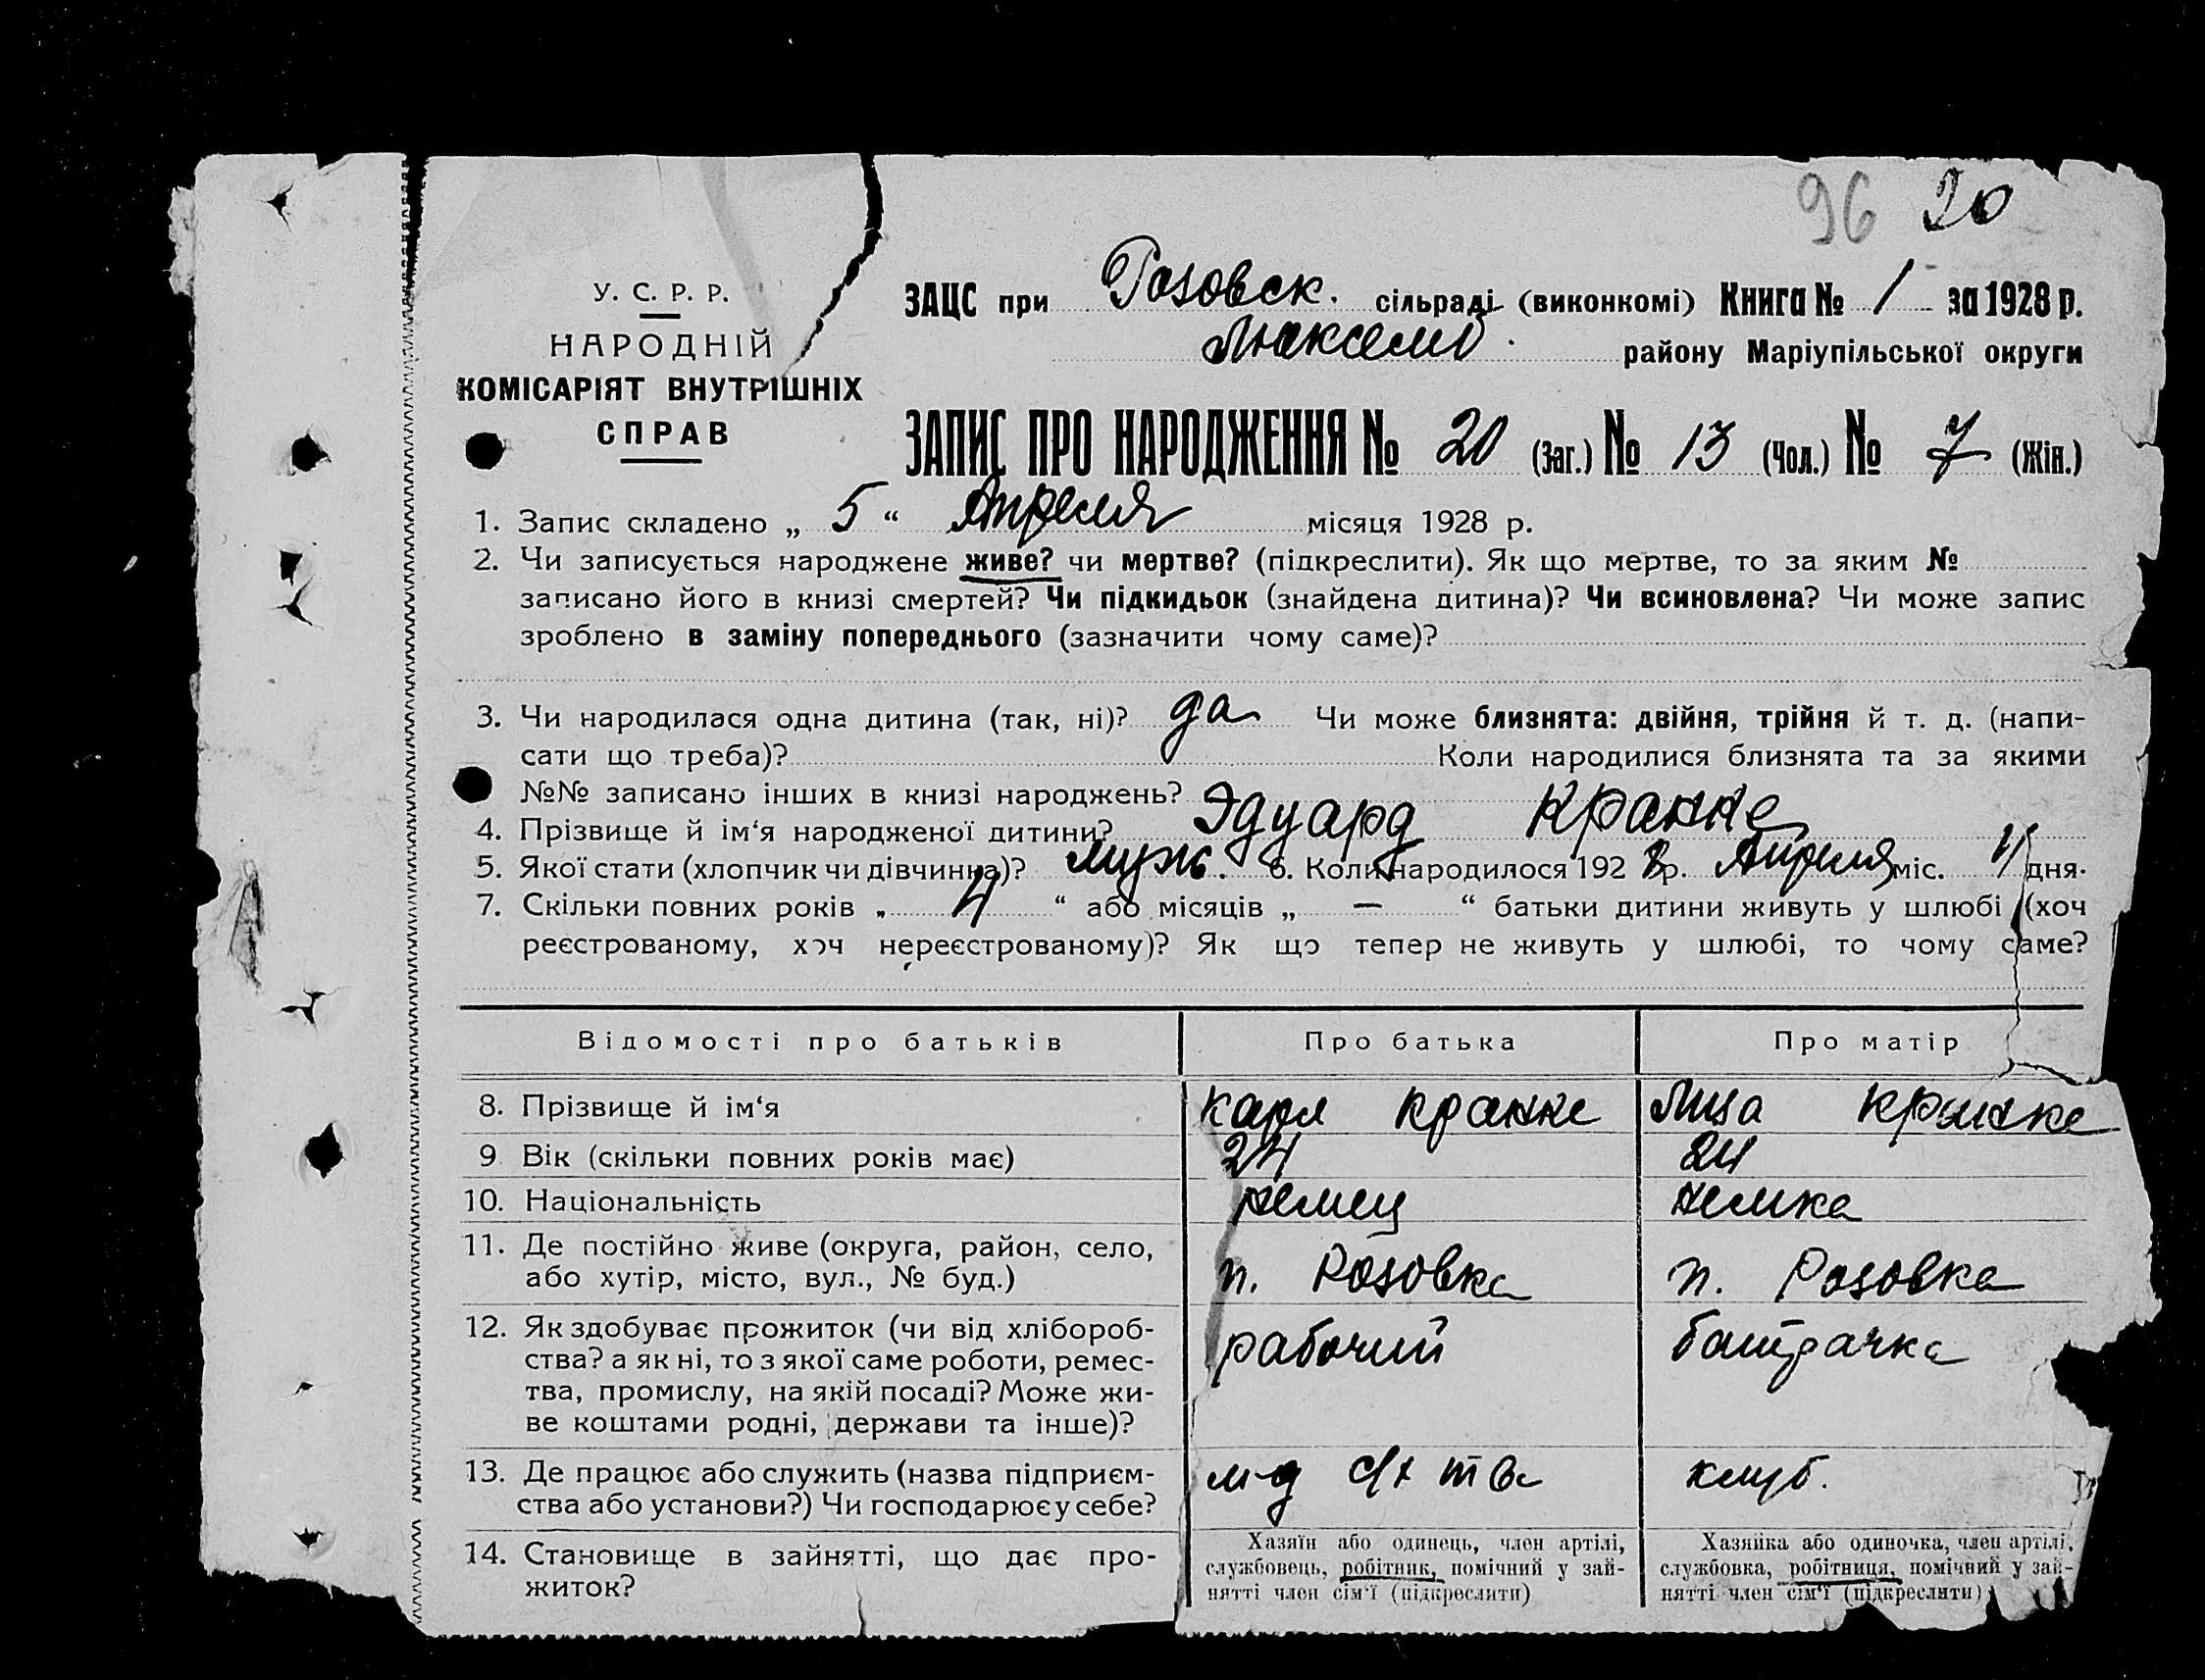 96 20
У. С. Р. Р.
НАРОДНІЙ
КОМІСАРІЯТ ВНУТРІШНІХ
СПРАВ
ЗАЦС при Розовск. сільраді (виконкомі) Книга № 1 за 1928 р.
району Маріупільської округи
ЗАПИС ПРО НАРОДЖЕННЯ № 20 (Заг.) № 13 (Чол.) № 7 (Жін.)
1. Запис складено „ 5 “ Апреля місяця 1928 р.
2. Чи записується народжене живе? чи мертве? (підкреслити). Як що мертве, то за яким №
записано його в книзі смертей? Чи підкидьок (знайдена дитина)? Чи всиновлена? Чи може запис
зроблено в заміну попереднього (зазначити чому саме)?
3. Чи народилася одна дитина (так, ні)? да Чи може близнята: двійня, трійня й т. д. (напи-
сати що треба)? Коли народилися близнята та за якими
№№ записано інших в книзі народжень?
4. Прізвище й ім‘я народженої дитини? Эдуард Кранке
5. Якої стати (хлопчик чи дівчинка)? муж. 6. Коли народилося 1928 р. Апреля міс. дня.
7. Скільки повних років „ 4 “ або місяців „ — “ батьки дитини живуть у шлюбі (хоч
реєстрованому, хоч нереєстрованому)? Як що тепер не живуть у шлюбі, то чому саме?
Відомості про батьків Про батька Про матір
8. Прізвище й ім‘я Карл Кранке Лиза Кранке
9 Вік (скільки повних років має) 24 24
10. Національність немец немка
11. Де постійно живе (округа, район, село,
або хутір, місто, вул., № буд.) п. Розовка п. Розовка
12. Як здобуває прожиток (чи від хлібороб-
ства? а як ні, то з якої саме роботи, ремес-
тва, промислу, на якій посаді? Може жи-
ве коштами родні, держави та інше)? рабочий батрачка
13. Де працює або служить (назва підприєм-
ства або установи?) Чи господарює у себе? клуб.
14. Становище в зайнятті, що дає про-
житок?
Хазяїн або одинець, член артілі,
службовець, робітник, помічний у зай-
нятті член сім‘ї (підкреслити)
Хазяйка або одиночка, член артілі,
службовка, робітниця, помічний у зай-
нятті член сім‘ї (підкреслити)